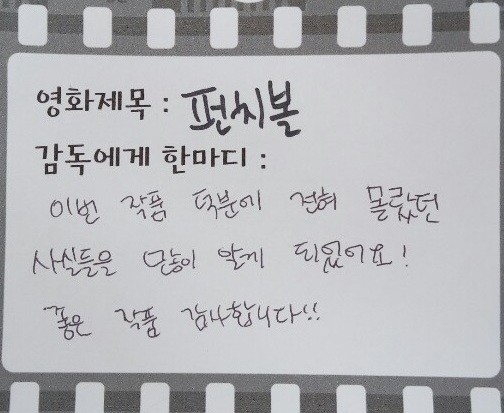 영화제목 : 펀치볼
감독에게 한마디 :
이번 작품 덕분에 전혀 몰랐던
사실들을 많이 알게 되었어요!
좋은 작품 감사합니다!!